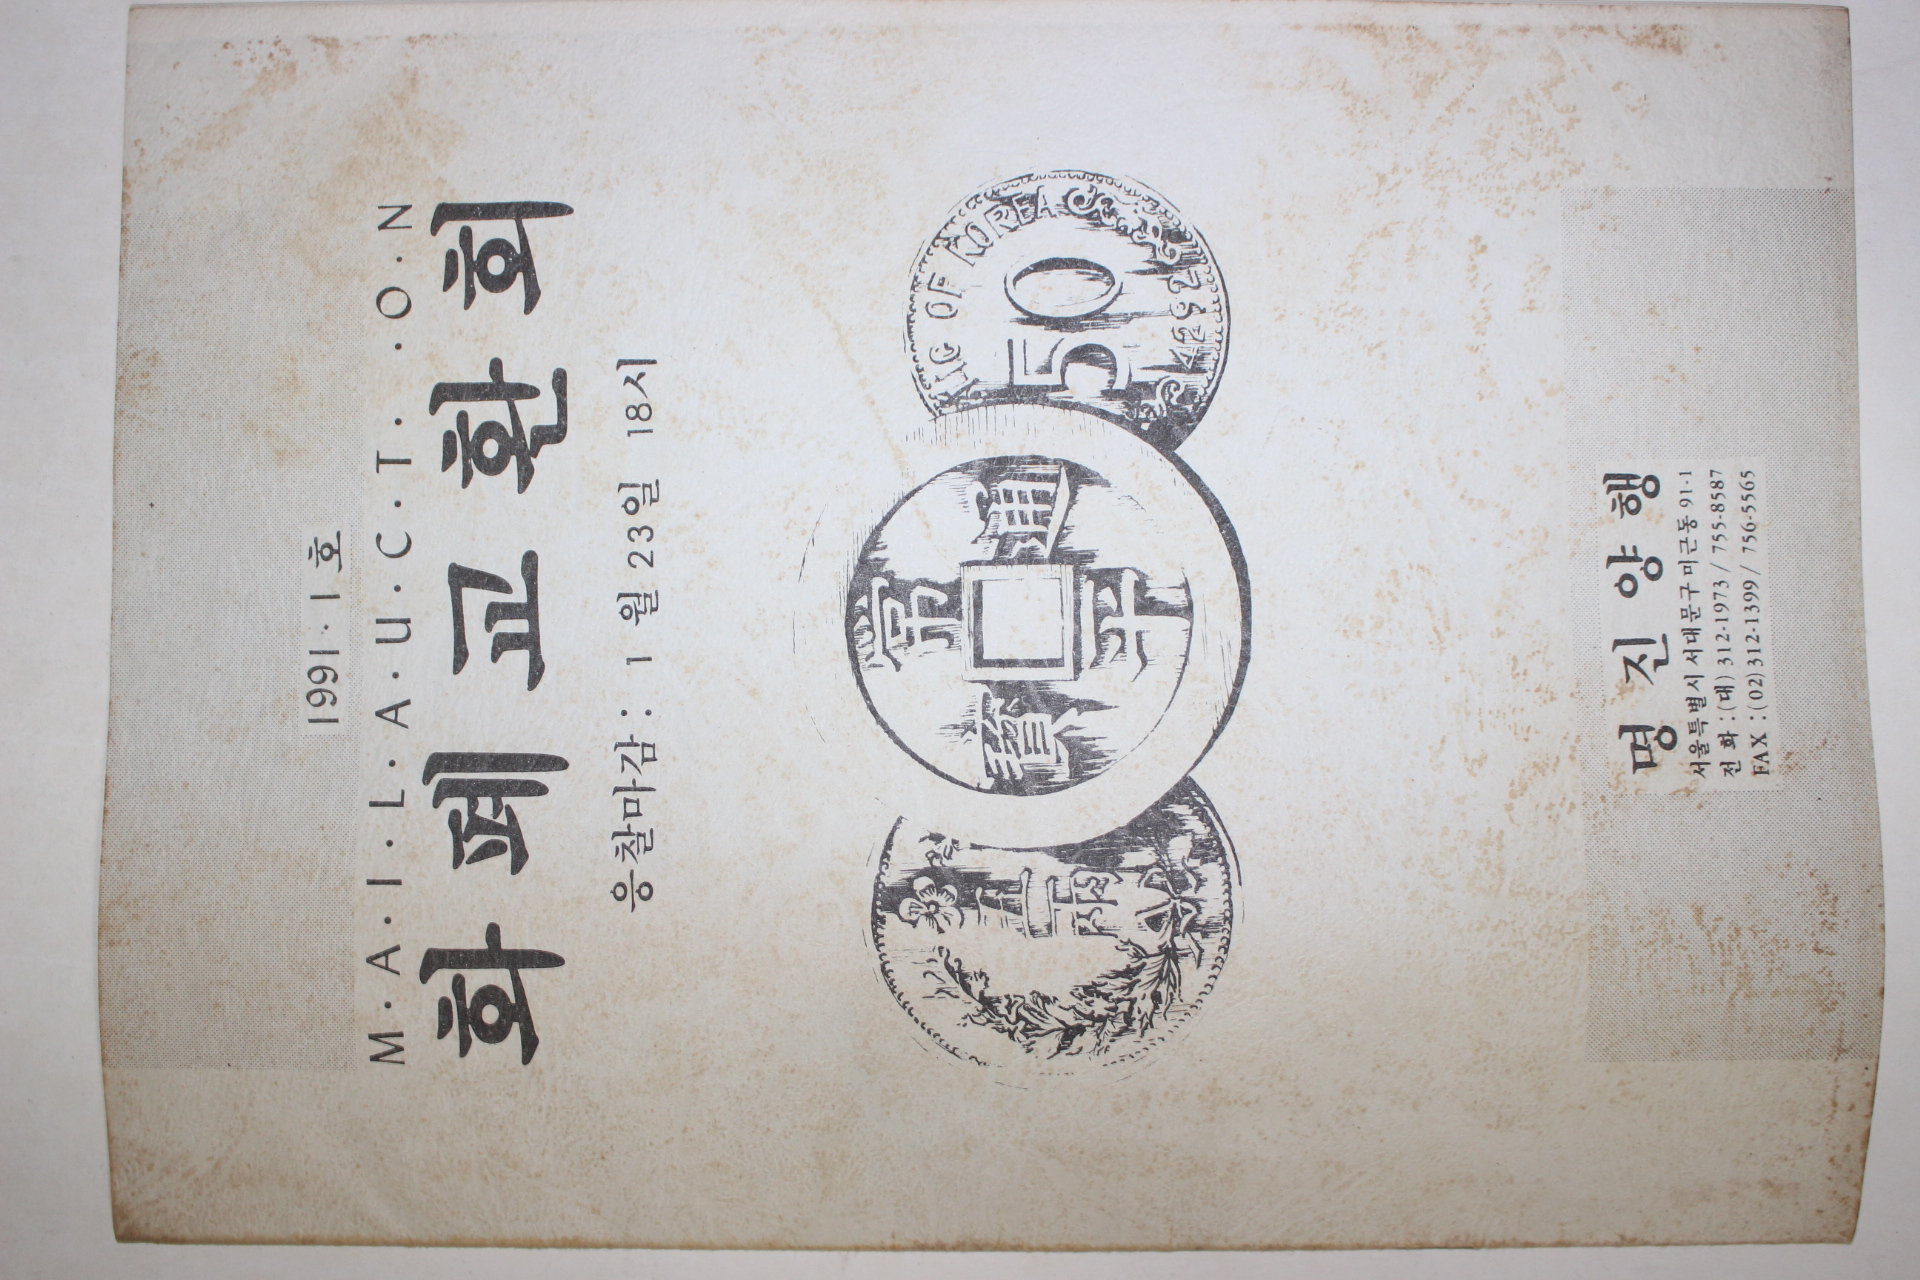 1991·1호
M·A·I·L·A·U·C·T·I·O·N
화폐교환회
응찰마감: 1월 23일 18시
OF KOREA
50
4292
常平通寶
명진양행
서울특별시 서대문구 미근동 91-1
전 화 : (대) 312-1973 / 755-8587
FAX : (02) 312-1399 / 756-5565